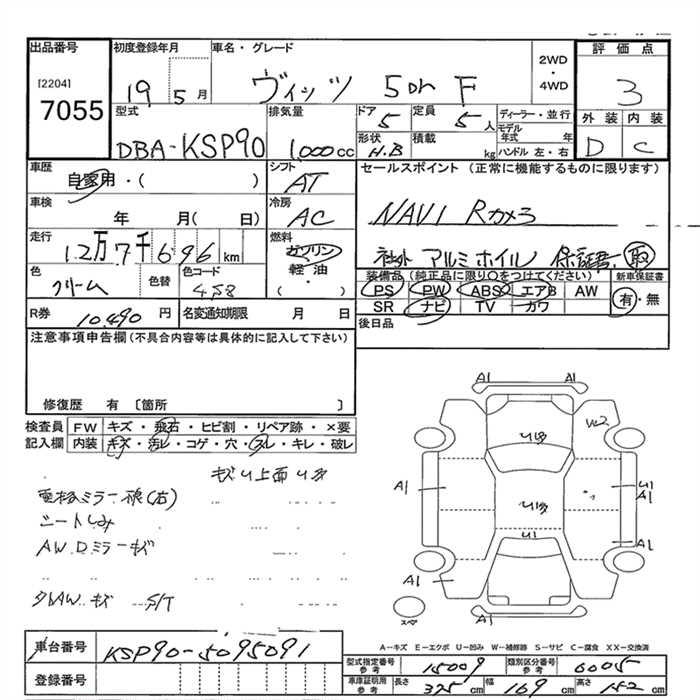 出品番号 初度登録年月 車名・グレード 評価点
[2204] 7055 19 5月 ヴィッツ 5Dr F 2WD・4WD 3
型式 排気量 ドア 定員 ディーラー・並行 外装 内装
DBA-KSP90 1,000cc 5 5人 モデル年式 年 D C
形状 H.B 積載 kg ハンドル 左・右
車歴 シフト セールスポイント (正常に機能するものに限ります)
自家用・( ) AT
車検 冷房 NAVI Rカメラ
年 月( 日) AC
走行 燃料 社外 アルミホイル 保証書 取
12万7千696km ガソリン 軽油・( )
色 色替 色コード 装備品 (純正品に限り○をつけてください) 新車保証書
クリーム 458 PS PW ABS エアB AW 有・無
SR ナビ TV カワ
R券 10,490円 名変通知期限 月 日 後日品
注意事項申告欄(不具合内容等は具体的に記入して下さい)
修復歴 有 〔箇所 〕
検査員 FW キズ・飛石・ヒビ割・リペア跡・×要
記入欄 内装 キズ・汚レ・コゲ・穴・スレ・キレ・破レ
シートしみ
AW.Dミラーキズ
外AW キズ S/T
A1 A1
W2
U3
A1 U1 A1
U3
U1
A1 A1
A1
スペア
A-キズ E-エクボ U-凹み W-補修跡 S-サビ C-腐食 XX-交換済
車台番号 KSP90-5095091
登録番号
型式指定番号 参考 15009 類別区分番号 参考 0005
車庫証明用 参考 長さ 375cm 幅 169cm 高さ 152cm